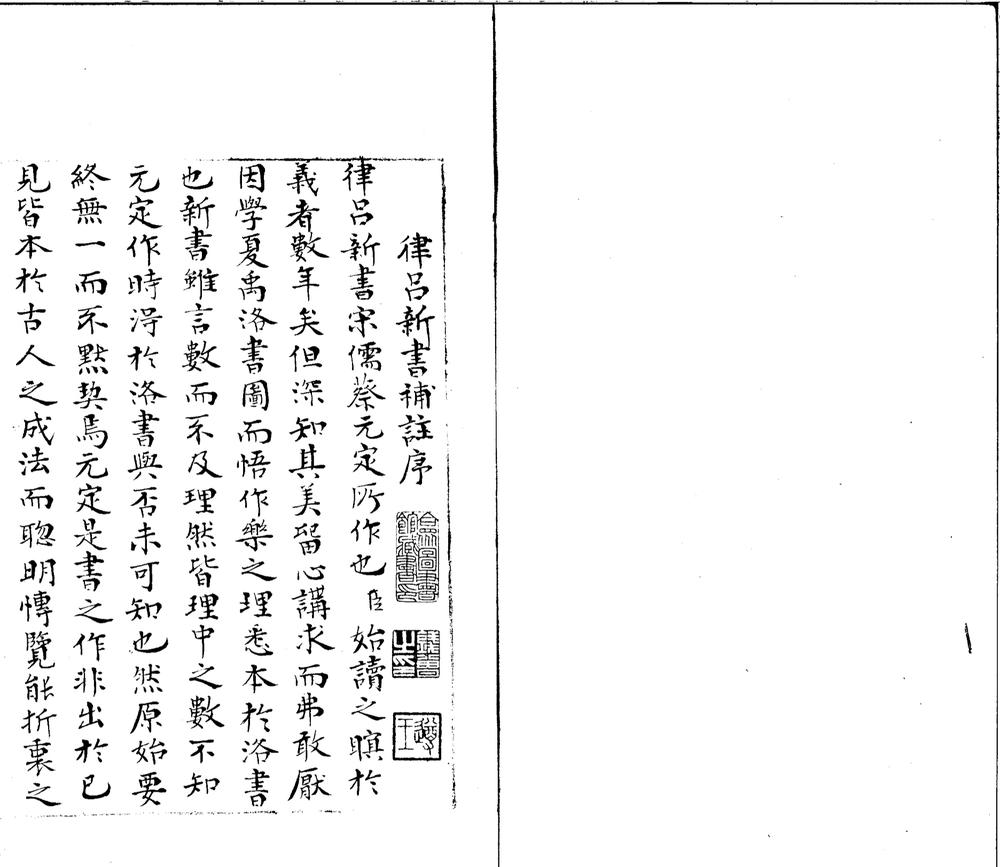 律呂新書補註序
律呂新書宋儒蔡元定所作也臣始讀之瞑於
義者數年矣但深知其美留心講求而弗敢厭
因學夏禹洛書圖而悟作樂之理悉本於洛書
也新書雖言數而不及理然皆理中之數不知
元定作時淂於洛書與否未可知也然原始要
終無一而不黙契焉元定是書之作非出於己
見皆本於古人之成法而聦明愽覽能折衷之